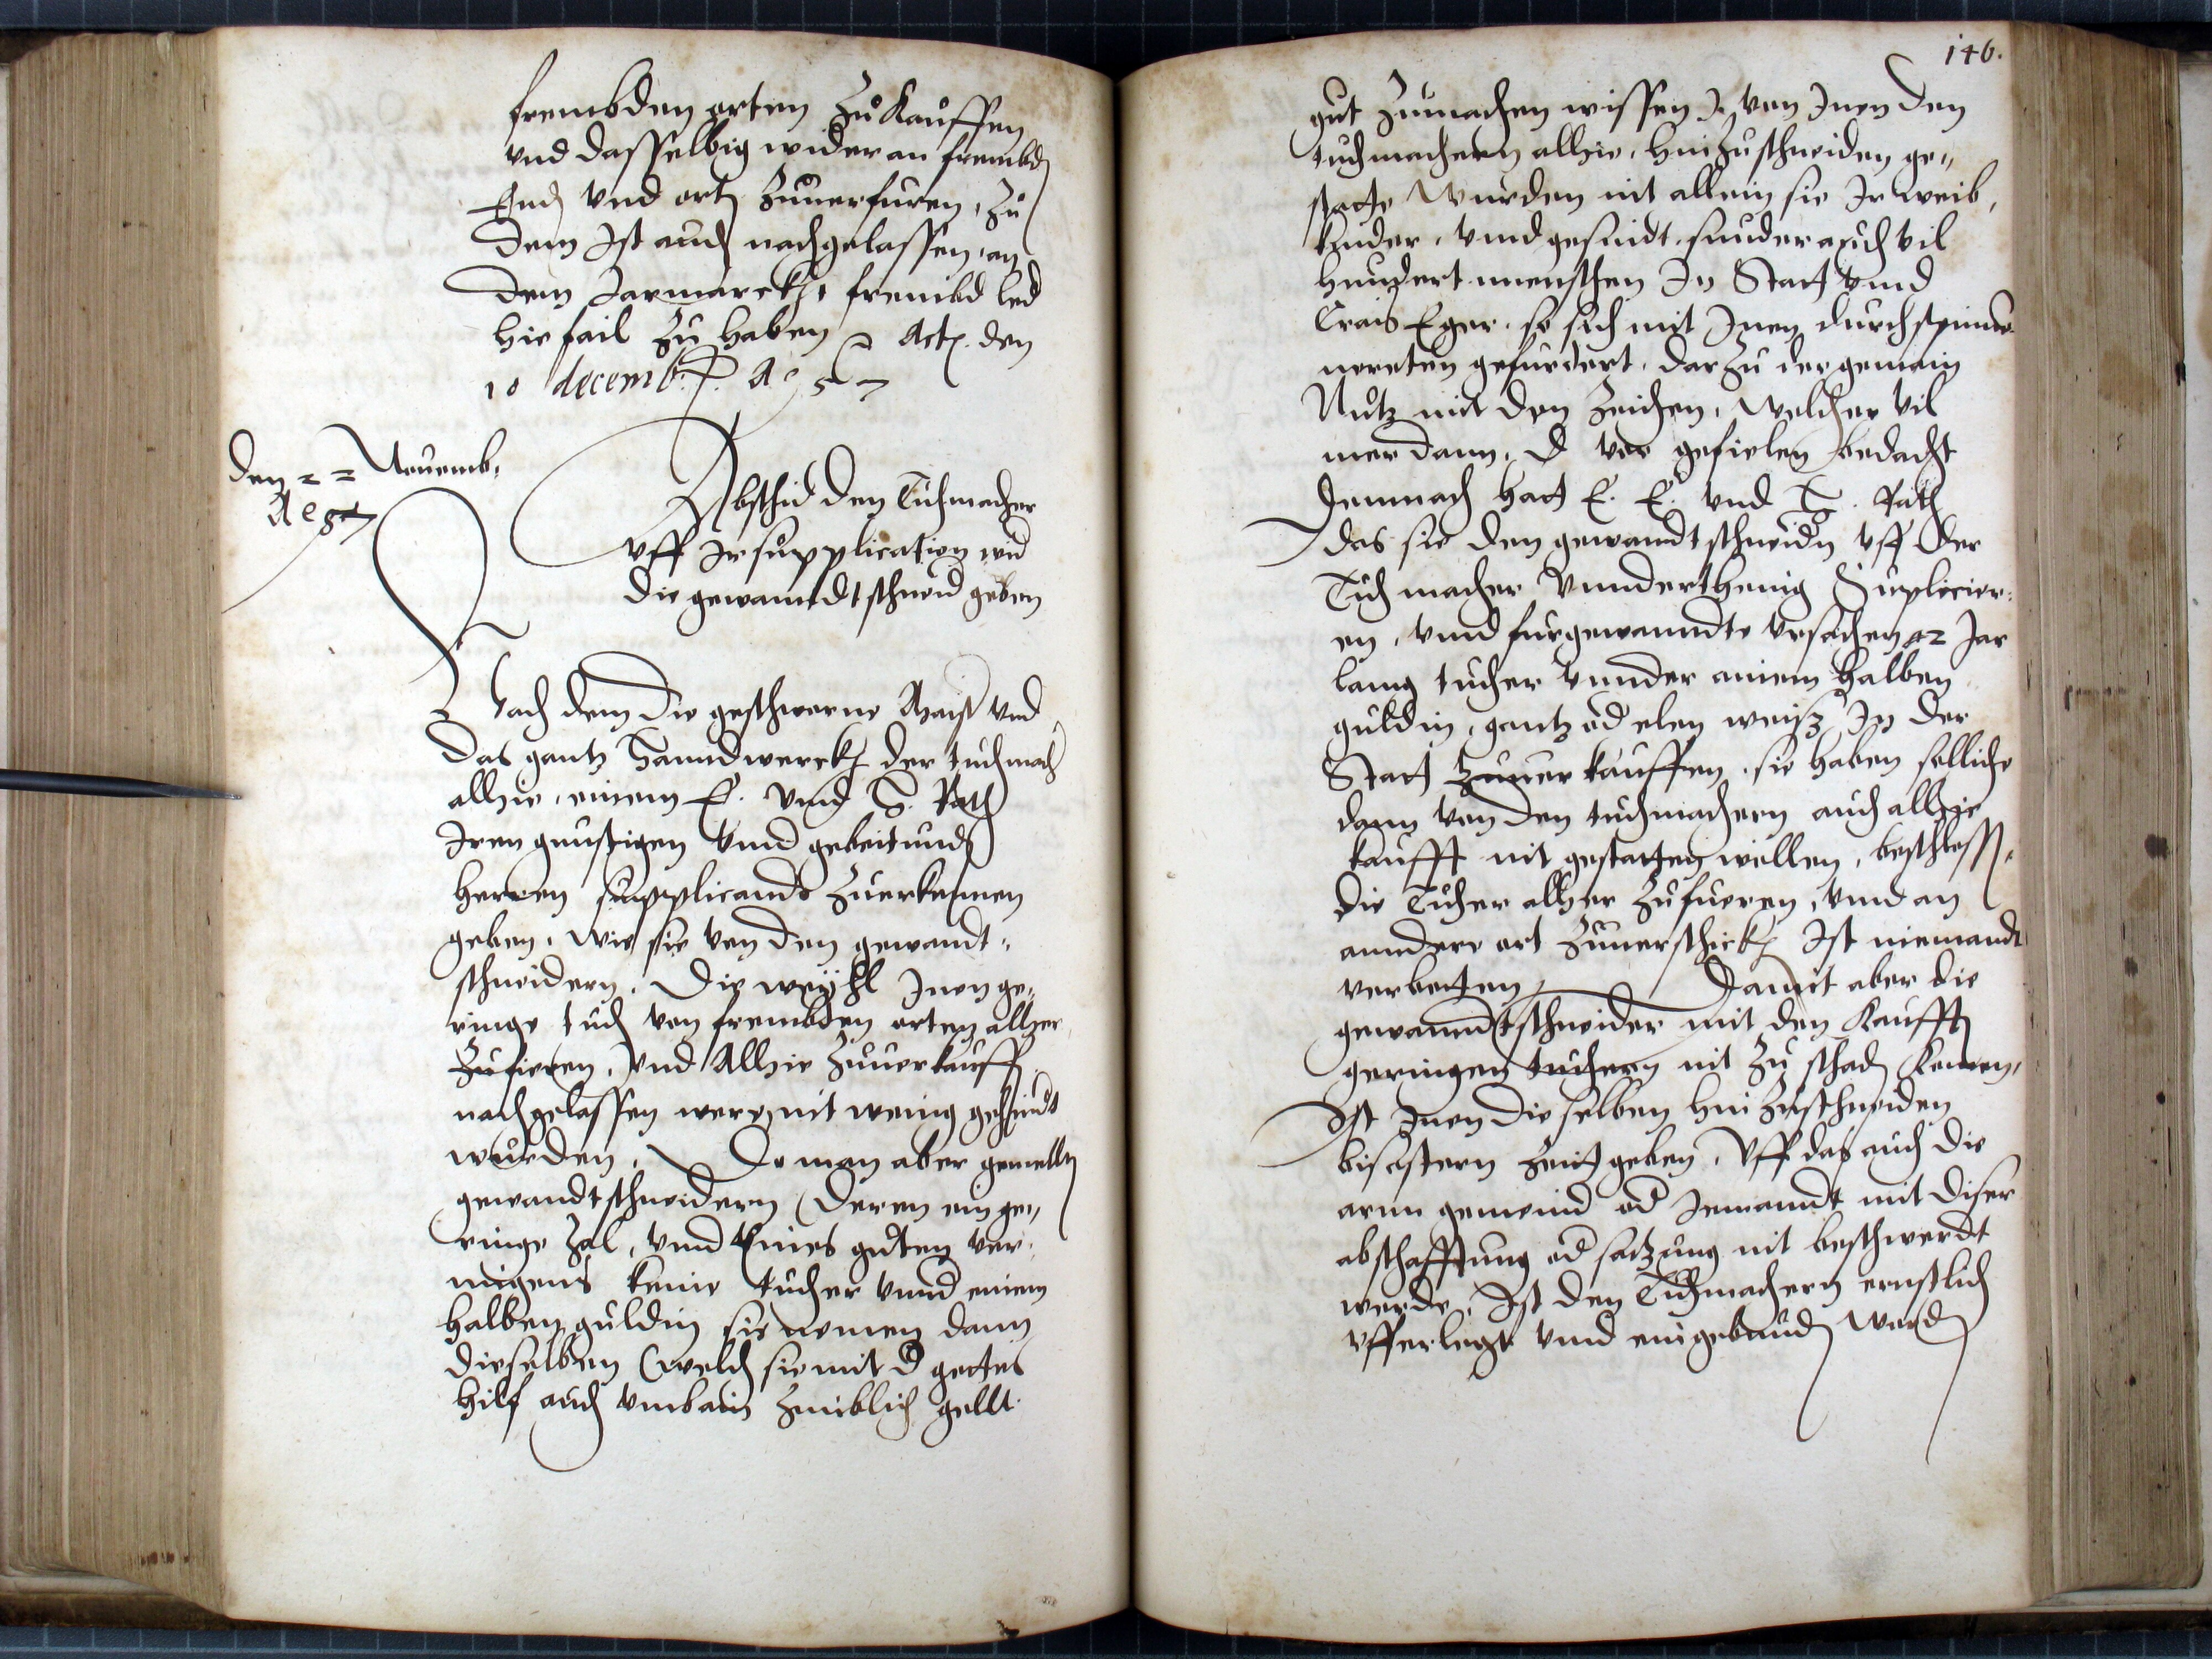 frembden orten zu Kauffen
vnd dasselbig wider an frembd
End vnd ort zuuerfuren, zu
dem Ist auch nachgelassen, an
dem Jarmarckh, frembd led
hie fail zu haben Act. den
10 decemb: A° 57
den 22 Nouemb.
A° 57
Abschid den Tuchmacher
vff Ir supplication wid
die gewanndtschneid geben
Nach dem die geschworne Maist vnd
das gantz Hanndwerckh der tuchmach
alhie, einem E. vnnd W. Rath
Iren gunstigen vnnd gebeitund
herren supplicando zuerkennen
geben, wie sie von den gewandt„
schneidern, die weyhl Inen ge„
ringe tuch von frembden orten alher
zufieren, vnd Alhie zuuerkauff
nachgelassen were, nit wenig gehindt
wurden, Do man aber gemelltn
gewandtschneidern (deren ein ge„
ringe Zal, vnnd eines guten ver„
migens keine tucher vnnd einem
halben guldin sie nemen dann
dieselben (welch sie mit d gottes
hilf auch vmb ain zimblich gellt
146.
gut zumachen wissen) von Inen den
tuchmachern alhie, hinzuschneiden ge„
statte wurden nit allein sie Ir weib,
kinder, vnnd gesindt, sunder auch vil
hundert menschen In Statt vnnd
Crais Eger, so sich mit Inen durch spinne
nereten gefurdert, darzu der gemain
Nutz mit den Zeichen, welcher vil
mer dann, d vor gefielen bedacht
Demnach hatt E. E. vnd W. Rath
das sie den gewandtschneidn vff der
Tuchmacher vnnderthenig Suplicier„
en, vnnd furgewanndte vrsachen 12 Jar
lanng tucher vnnder ainem halben
guldin, gantz od elen weisz In der
Statt zuuerkauffen, sie haben solliche
dann von den tuchmachern auch alhie
kaufft nit gestatten wöllen, beschloss,
die Tucher alher zufueren, vnnd an
anndere ort zuuerschickh Ist niemandt
verbotten Damit aber die
gewanndtschneider mit den Kaufftn
geringen tuchern nit zu schad Komen,
Ist Inen dieselben hin zuschneiden
bis ostern zeit geben, Vff das auch die
arm gemeind od Jemanndt mit diser
abschaffung od satzung nit beschwerdt
werde, Ist den Tuchmachern ernstlich
vfferlegt vnnd eingebund word